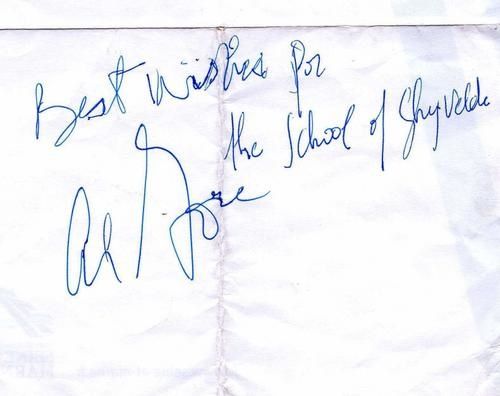 Best Wishes for
the School of Ghyvelde
Al Gore